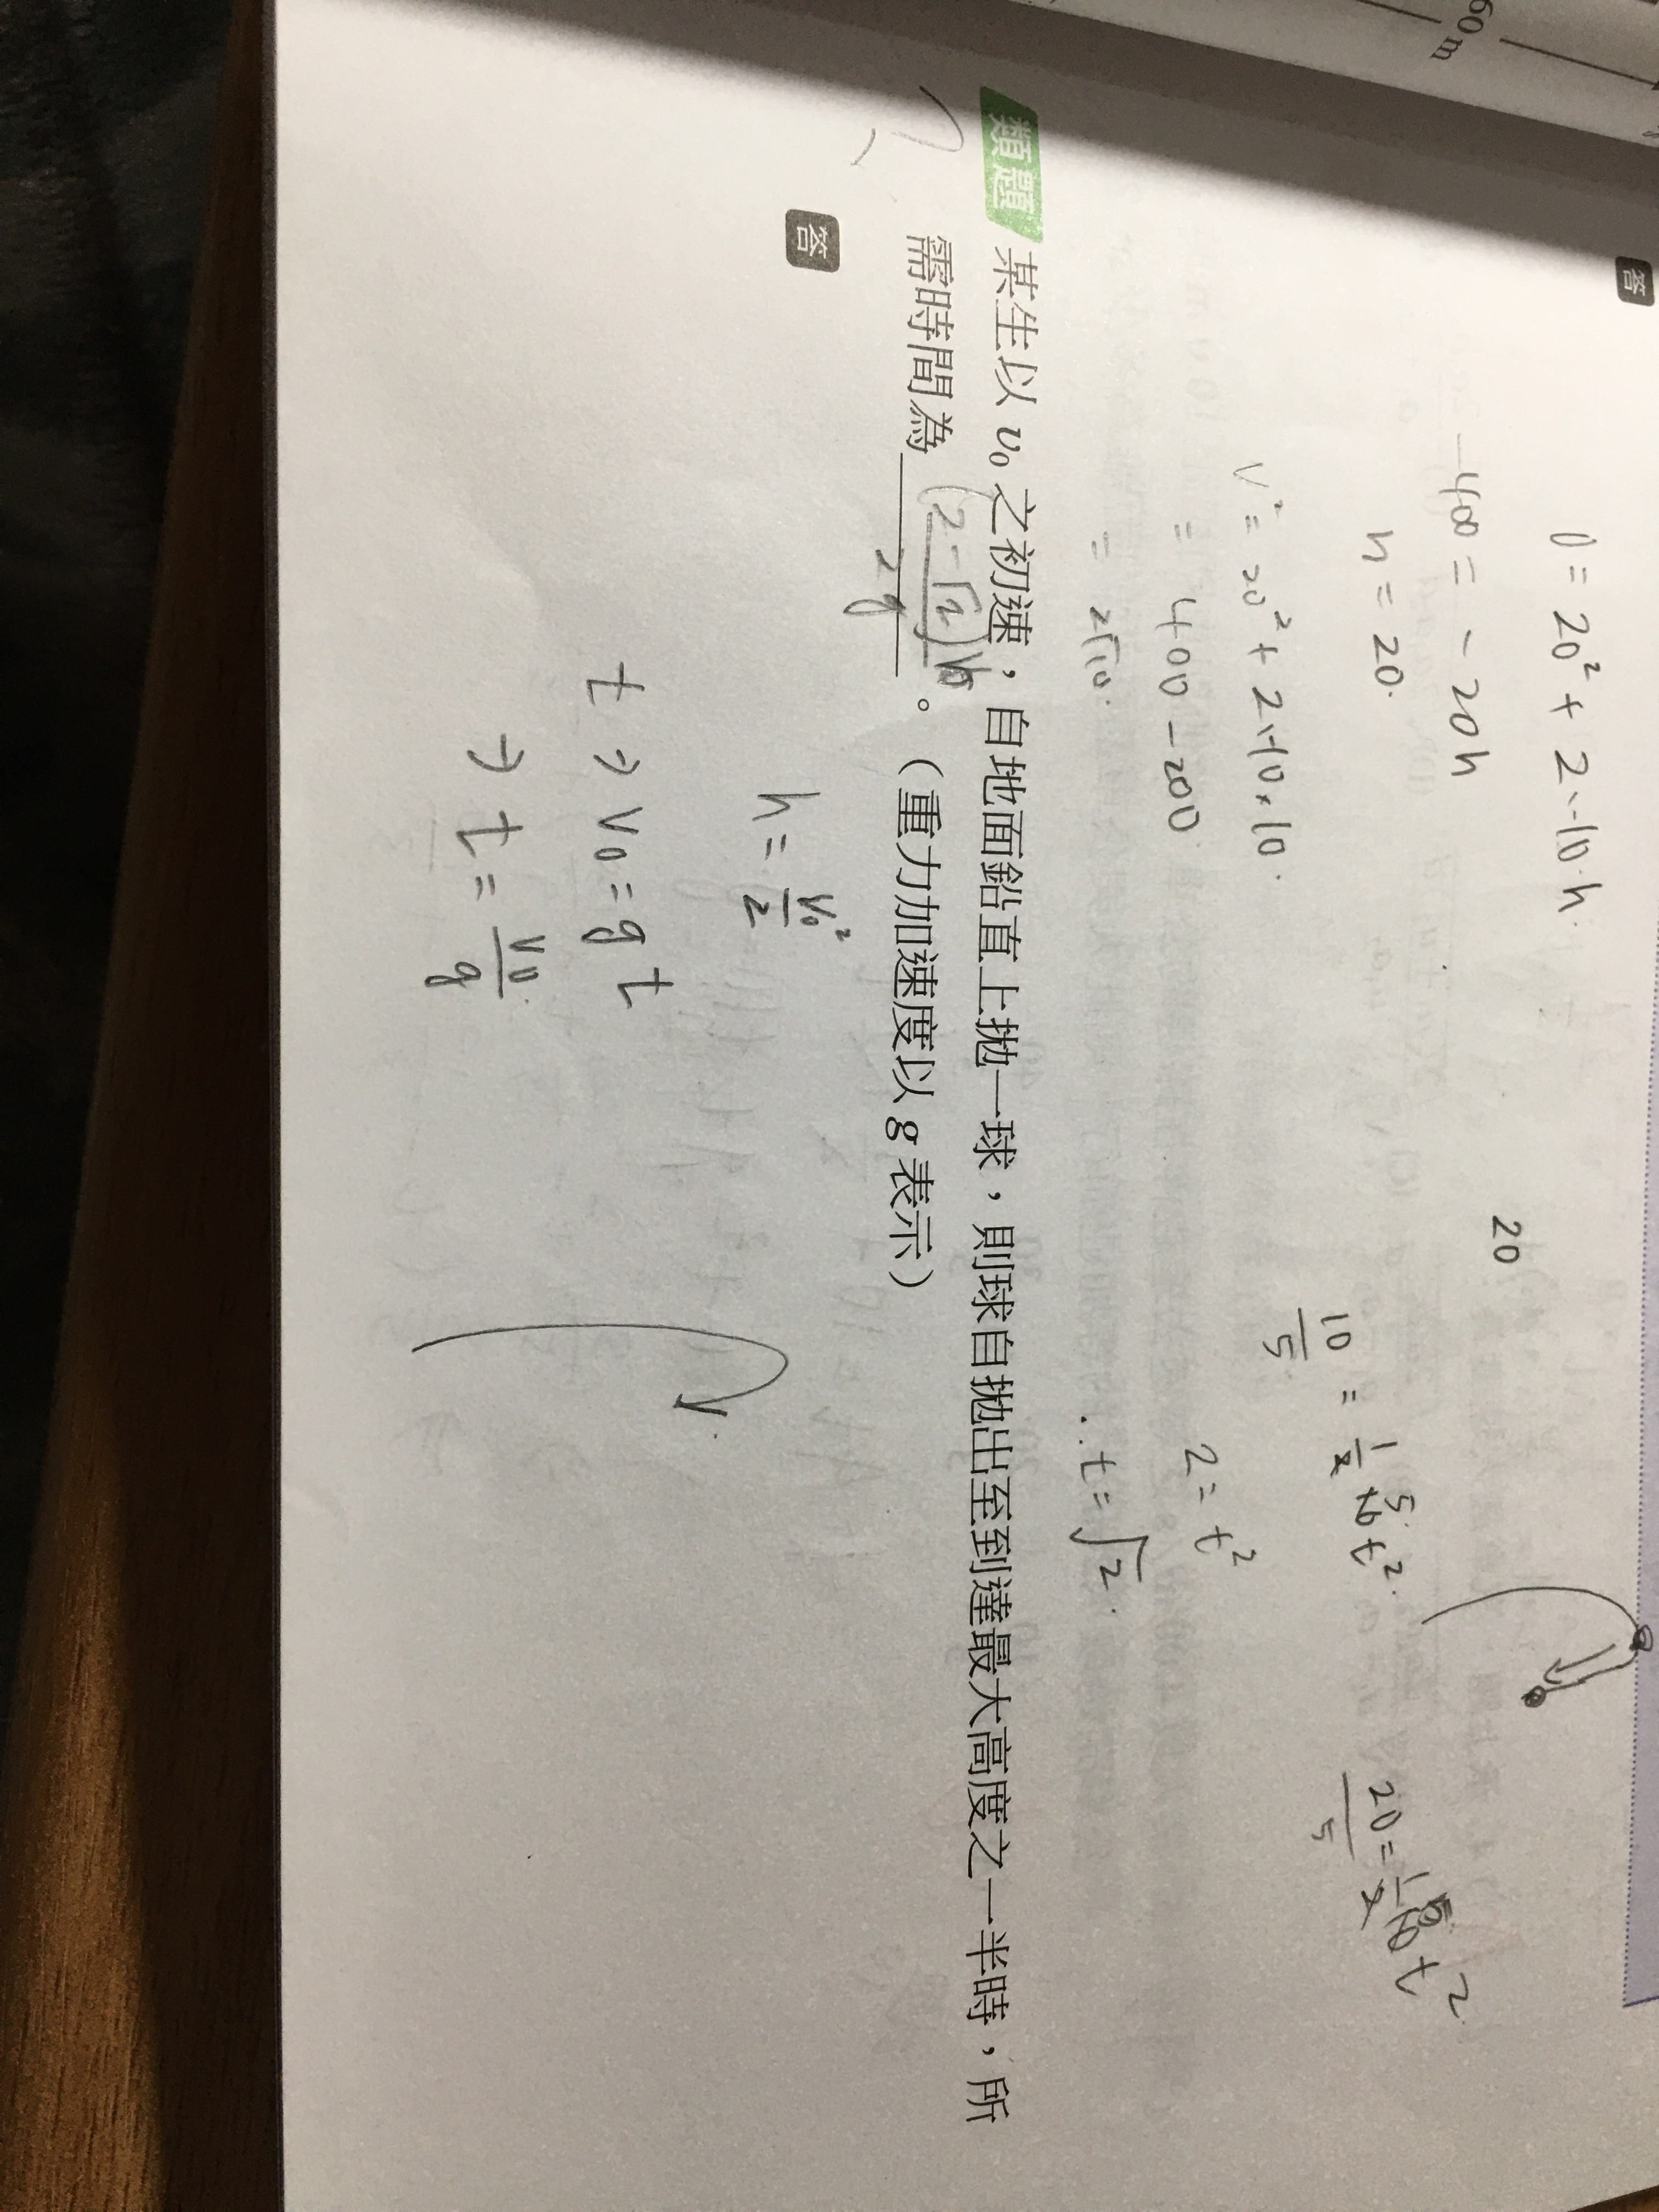 60 m
答
0 = 20² + 2·-10·h
-400 = -20h
h = 20.
V² = 20² + 2·-10×10.
= 400 - 200
= 2√10.
20
10/5 = 1/2 10 5 t².
2 = t²
∴ t = √2.
20/5 = 1/2 10 t²
類題 某生以 v₀ 之初速，自地面鉛直上拋一球，則球自拋出至到達最大高度之一半時，所
需時間為 (2-√2)V₀/2g 。（重力加速度以 g 表示）
答
h = V₀²/2
t → V₀ = gt
→ t = V₀/g